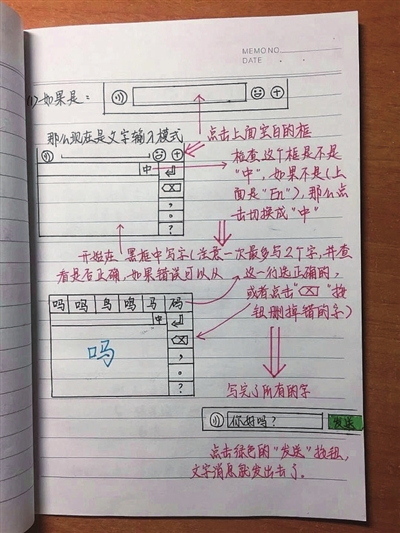 MEMO NO.
DATE
(1)如果是:
那么现在是文字输入模式
点击上面空白的框
检查这个框是不是
"中",如果不是(上
面是"En"),那么点
击切换成"中"
中
,
。
?
开始在 黑框中写字(注意一次最多写2个字,并查
看是否正确,如果错误可以从 这一行选正确的,
或者点击"⌫"按
钮删掉错的字)
吗 吗 鸟 鸣 马 码
中
吗
,
。
?
写完了所有的字
你好吗?
发送
点击绿色的"发送"按钮,
文字消息就发出去了.